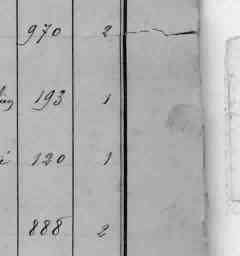 970 2
193 1
120 1
888 2